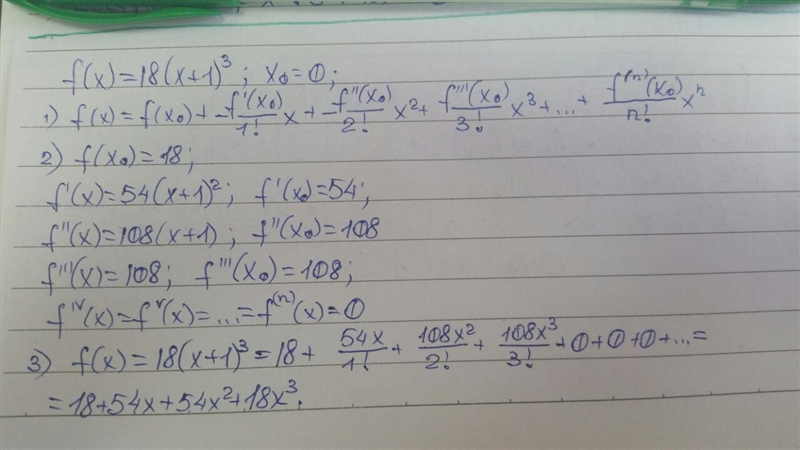 f(x)=18(x+1)³; x₀=0;
1) f(x)=f(x₀)+ f'(x₀)/1! x + f''(x₀)/2! x²+ f'''(x₀)/3! x³+...+ f⁽ⁿ⁾(x₀)/n! xⁿ
2) f(x₀)=18;
f'(x)=54(x+1)²; f'(x₀)=54;
f''(x)=108(x+1); f''(x₀)=108
f'''(x)=108; f'''(x₀)=108;
f^IV(x)=f^V(x)=...=f⁽ⁿ⁾(x)=0
3) f(x)=18(x+1)³=18+ 54x/1! + 108x²/2! + 108x³/3! +0+0+0+...=
=18+54x+54x²+18x³.